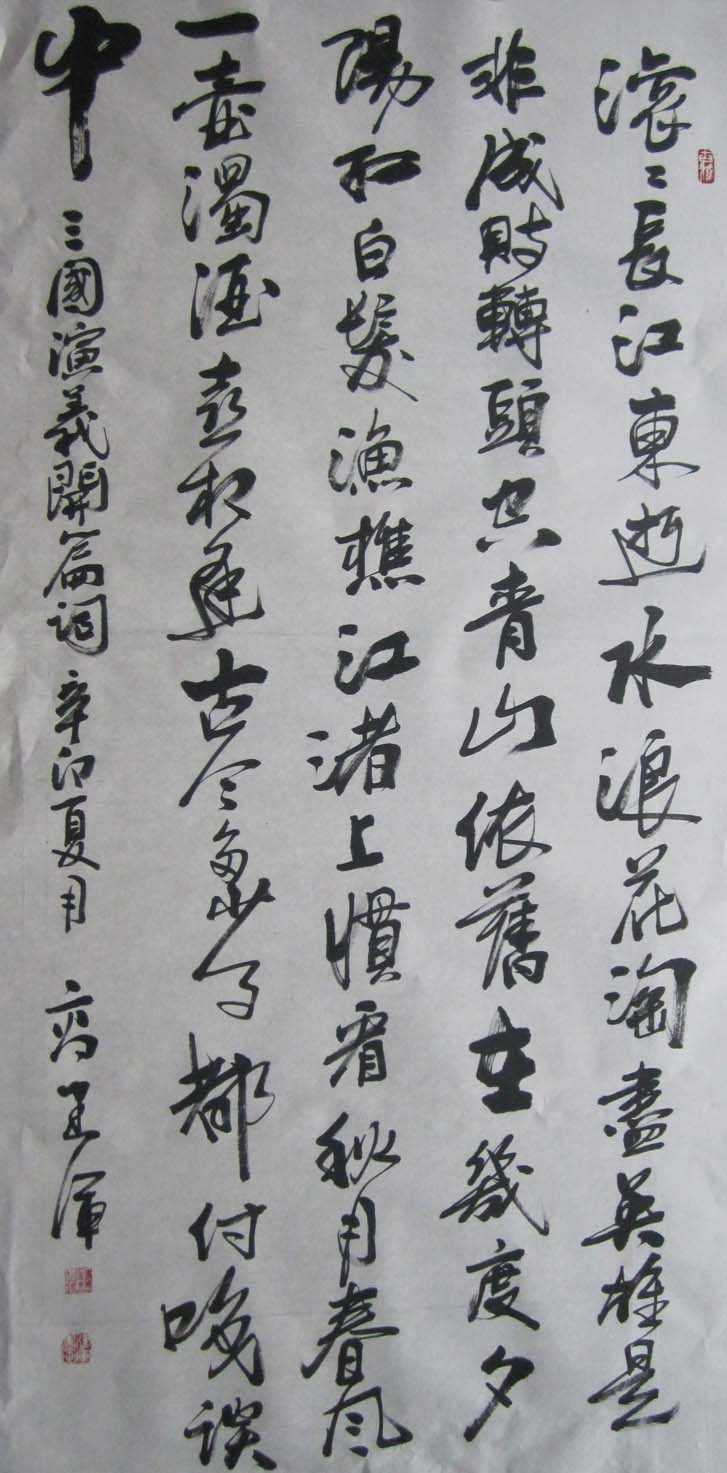 滚〻長江東逝水浪花淘盡英雄是
非成敗轉頭空青山依舊在幾度夕
陽紅白髮漁樵江渚上慣看秋月春风
一壺濁酒喜相逢古今多少事都付咲談
中 三國演義開篇词 辛卯夏月